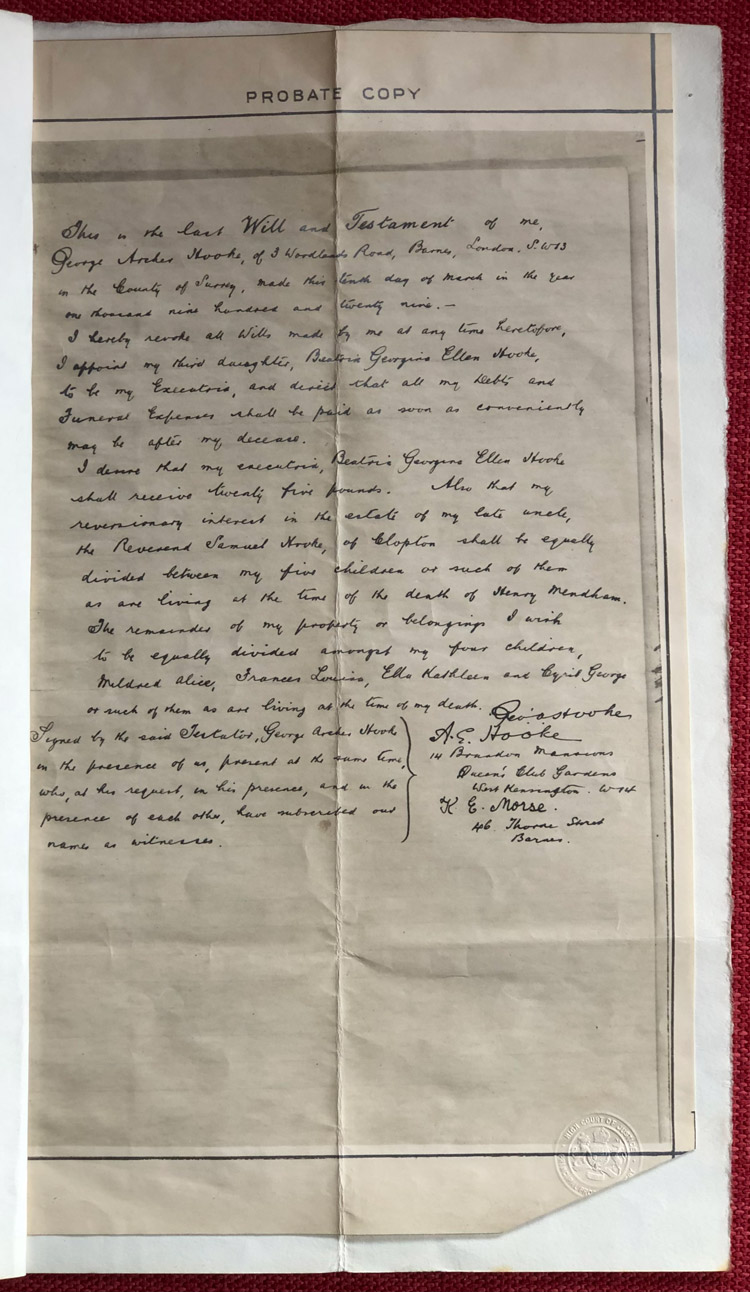 PROBATE COPY
This is the last Will and Testament of me,
George Archer Hooke, of 3 Woodlands Road, Barnes, London. S.W13
in the County of Surrey, made this tenth day of March in the year
one thousand nine hundred and twenty nine. —
I hereby revoke all Wills made by me at any time heretofore,
I appoint my third daughter, Beatrix Georgina Ellen Hooke,
to be my Executrix, and direct that all my Debts and
Funeral Expenses shall be paid as soon as conveniently
may be after my decease.
I desire that my executrix, Beatrix Georgina Ellen Hooke
shall receive twenty five pounds. Also that my
reversionary interest in the estate of my late uncle,
the Reverend Samuel Hooke, of Clopton shall be equally
divided between my five children or such of them
as are living at the time of the death of Henry Mendham.
The remainder of my property or belongings I wish
to be equally divided amongst my four children,
Mildred Alice, Frances Louisa, Ella Kathleen and Cyril George
or such of them as are living at the time of my death. Geo. A Hooke
Signed by the said Testator, George Archer Hooke
in the presence of us, present at the same time,
who, at his request, in his presence, and in the
presence of each other, have subscribed our
names as witnesses.
A. E. Hooke
14 Brandon Mansions
Queen's Club Gardens
West Kensington. W.14
K E. Morse.
46. Thorne Street
Barnes.
HIGH COURT OF JUSTICE